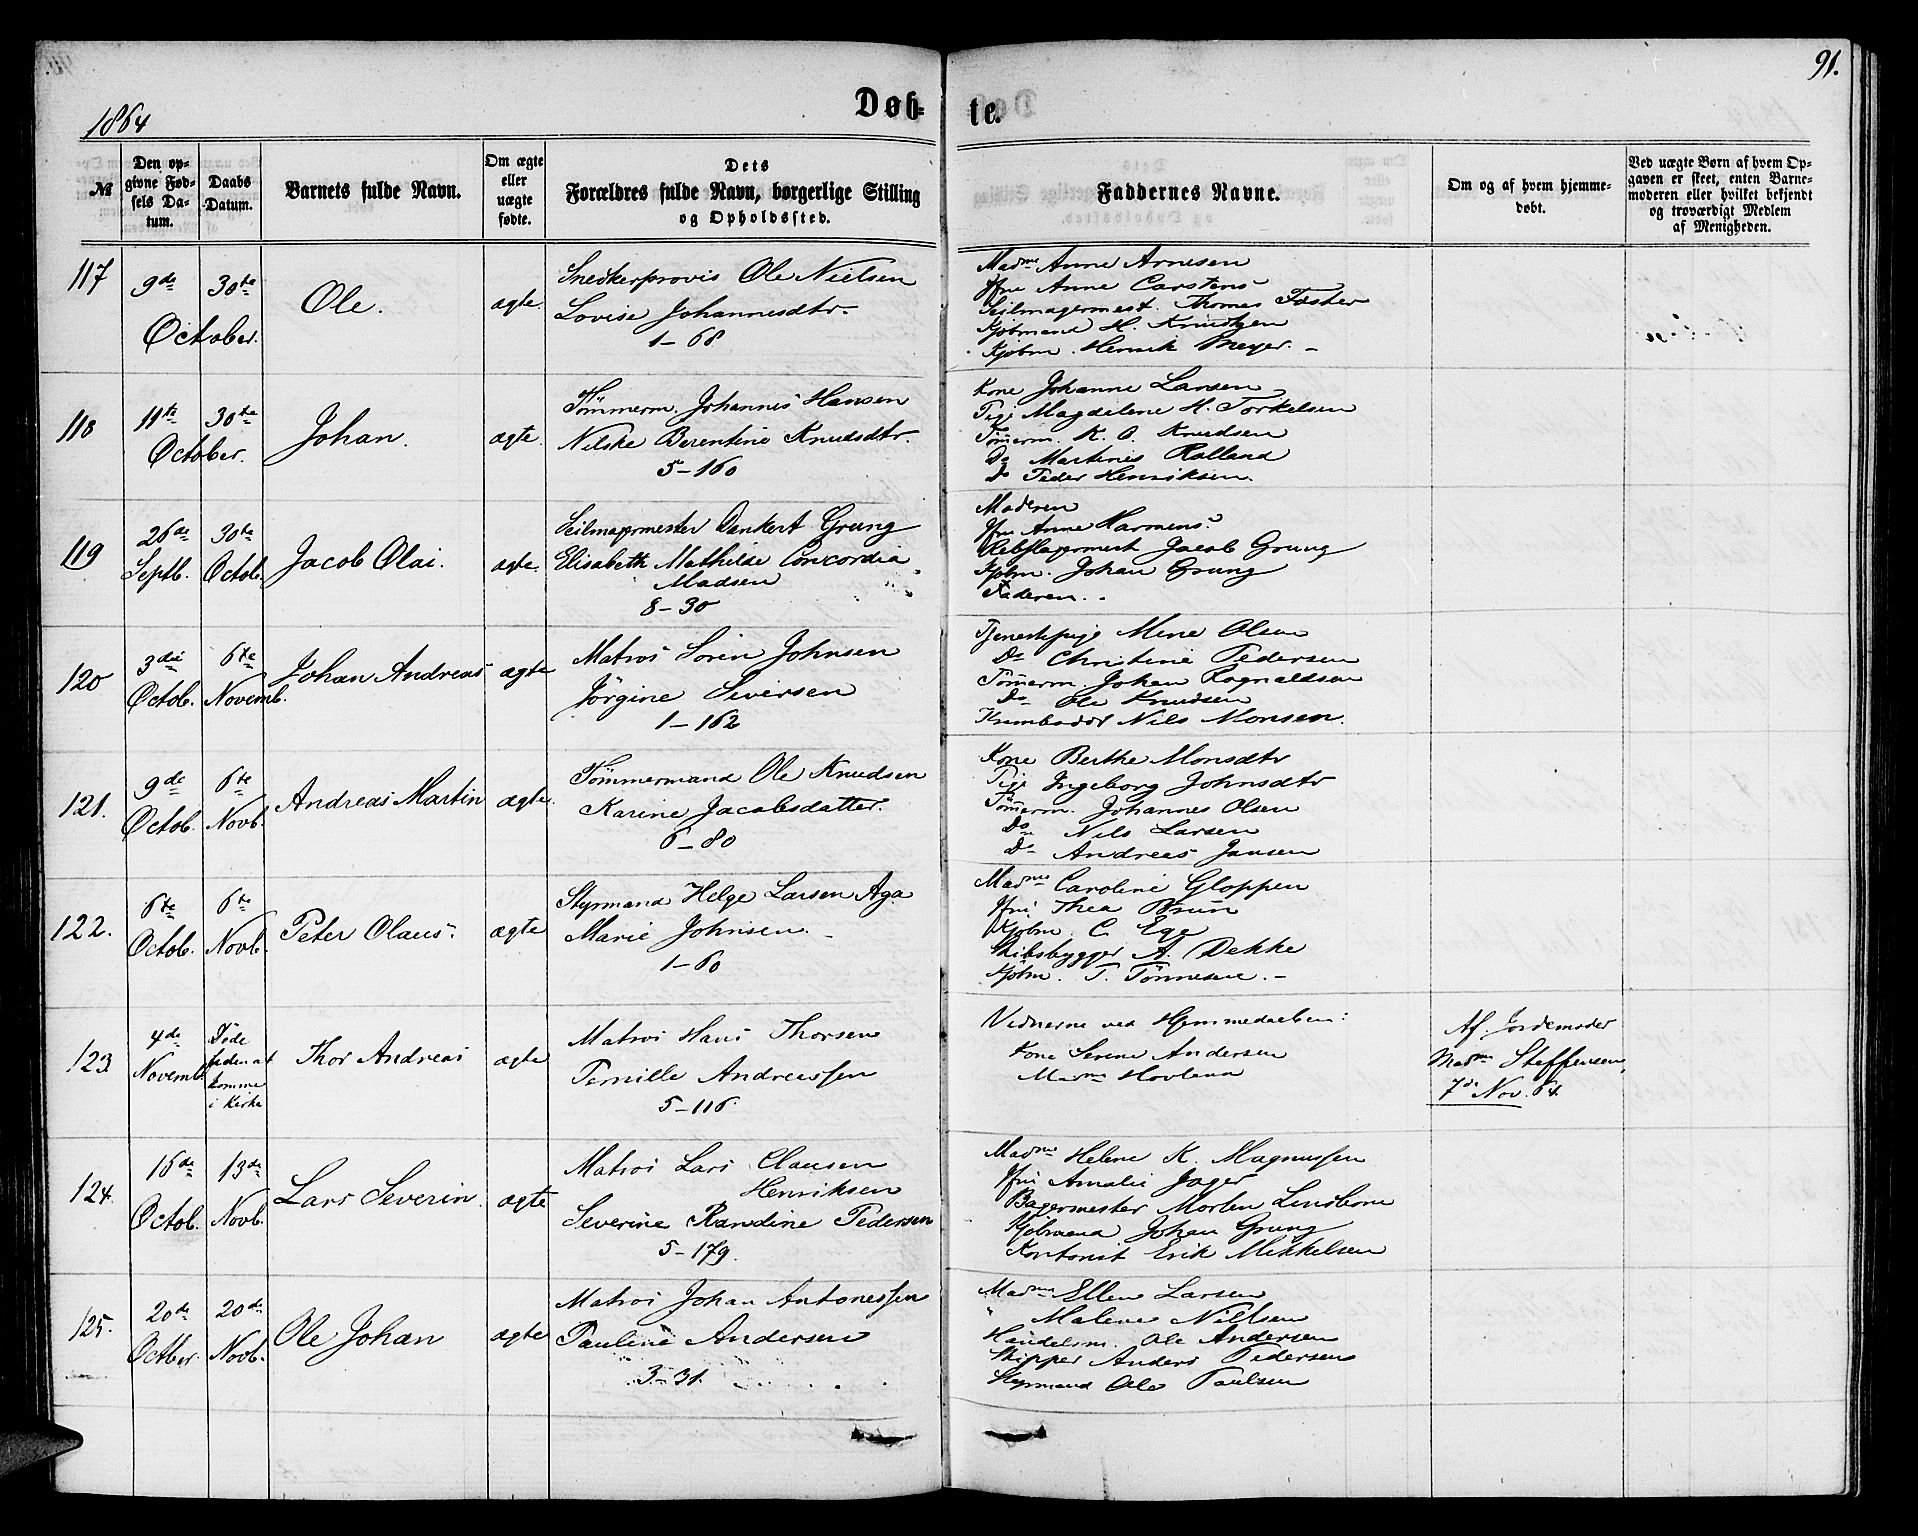 91.
1864
Døb-
te.
№
Den op-
givne Fød-
sels Da-
tum.
Daabs
Datum.
Barnets fulde Navn.
Om ægte
eller
uægte
fødte.
Dets
Forældres fulde Navn, borgerlige Stilling
og Opholdssted.
Faddernes Navne.
Om og af hvem hjemme-
døbt.
Ved uægte Børn af hvem Op-
gaven er skeet, enten Barne-
moderen eller hvilket bekjendt
og troværdigt Medlem
af Menigheden.
117
9de
October.
30te
Ole.
ægte.
Snedkerprovis Ole Nielsen
Lovise Johannesdtr.
1-68
Madme Anne Arnesen
Jfru Anne Carstens
Seilmagermest. Thomas Faster
Kjøbmand H. Knudtzen
Kjøbm. Henrik Meyer.
118
11te
October.
30te
Johan.
ægte.
Tømmerm. Johannes Hansen
Nilske Berentine Knudsdtr.
5-160
Kone Johanne Larsen
Pige Magdelene H. Torkelsen
Tømerm. K. O. Knudsen
Do Martines Rolland
Do Peder Henriksen.
119
26de
Septb.
30te
Octob.
Jacob Olai.
ægte.
Seilmagermester Dankert Grung
Elisabeth Mathilde Concordia
Madsen
8-30
Moderen
Jfru Anne Harmens
Rebslagermest Jacob Grung
Kjøbm. Johan Grung
Faderen.
120
3die
Octob.
6te
Novemb.
Johan Andreas
ægte
Matros Sören Johnsen
Jörgine Siversen
1-162
Tjenestepige Mine Olsen
Do Christine Pedersen
Tømerm. Johan Rognaldsen
Do Ole Knudsen
Nils Monsen.
121.
9de
Octob.
6te
Novb.
Andreas Martin
ægte.
Tømmermand Ole Knudsen
Karine Jacobsdatter.
6-80
Kone Berthe Monsdtr
Pige Ingeborg Johnsdtr
Tømerm. Johannes Olsen
Do Nils Larsen
Do Andreas Jansen
122.
6te
Octob.
6te
Novb.
Peter Olaus.
ægte
Styrmand Helge Larsen Aga
Marie Johnsen.
1-60
Madme Caroline Gloppen
Jfru Thea Brun
Kjøbm. C. Ege
Skibsbygger A. Dekke
Kjøbm. T. Tönnesen.
123.
4de
Novemb.
Døde
inden at
komme
i Kirke
Thor Andreas
ægte
Matros Hans Thorsen
Pernille Andreassen
5-116.
Vidnerne ved Hjemmedaaben:
Kone Serine Andersen
Madme Hovland
Af Jordemoder
Madme Steffensen,
7de Nov. 64.
124.
16de
Octob.
13de
Novb.
Lars Severin.
ægte
Matros Lars Clausen
Henriksen
Severine Randine Pedersen
5-179.
Madme Helene K. Magnussen
Jfru Amalie Jager
Bagermester Morten Lindbom
Kjøbmand Johan Grung
Kontorist Erik Mikkelsen
125.
20de
Octber.
20de
Novb.
Ole Johan
ægte
Matros Johan Antonessen
Pauline Andersen
3-31.
Madme Ellen Larsen
" Malene Nillsen
Handelsm. Ole Andersen
Skipper Anders Pedersen
Styrmand Ole Paulsen